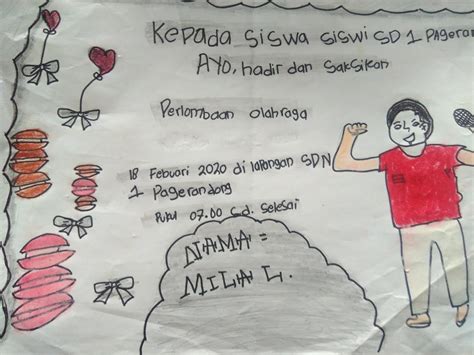 Kepada siswa siswi SD 1 PAgeran
AYO, hadir dan SakSikan
Perlombaan olahraga
18 Febuari 2020 di lapangan SDN
1 Pagerandong
Pukul 07.00 S.d. Selesai
NAMA =
MILA L.